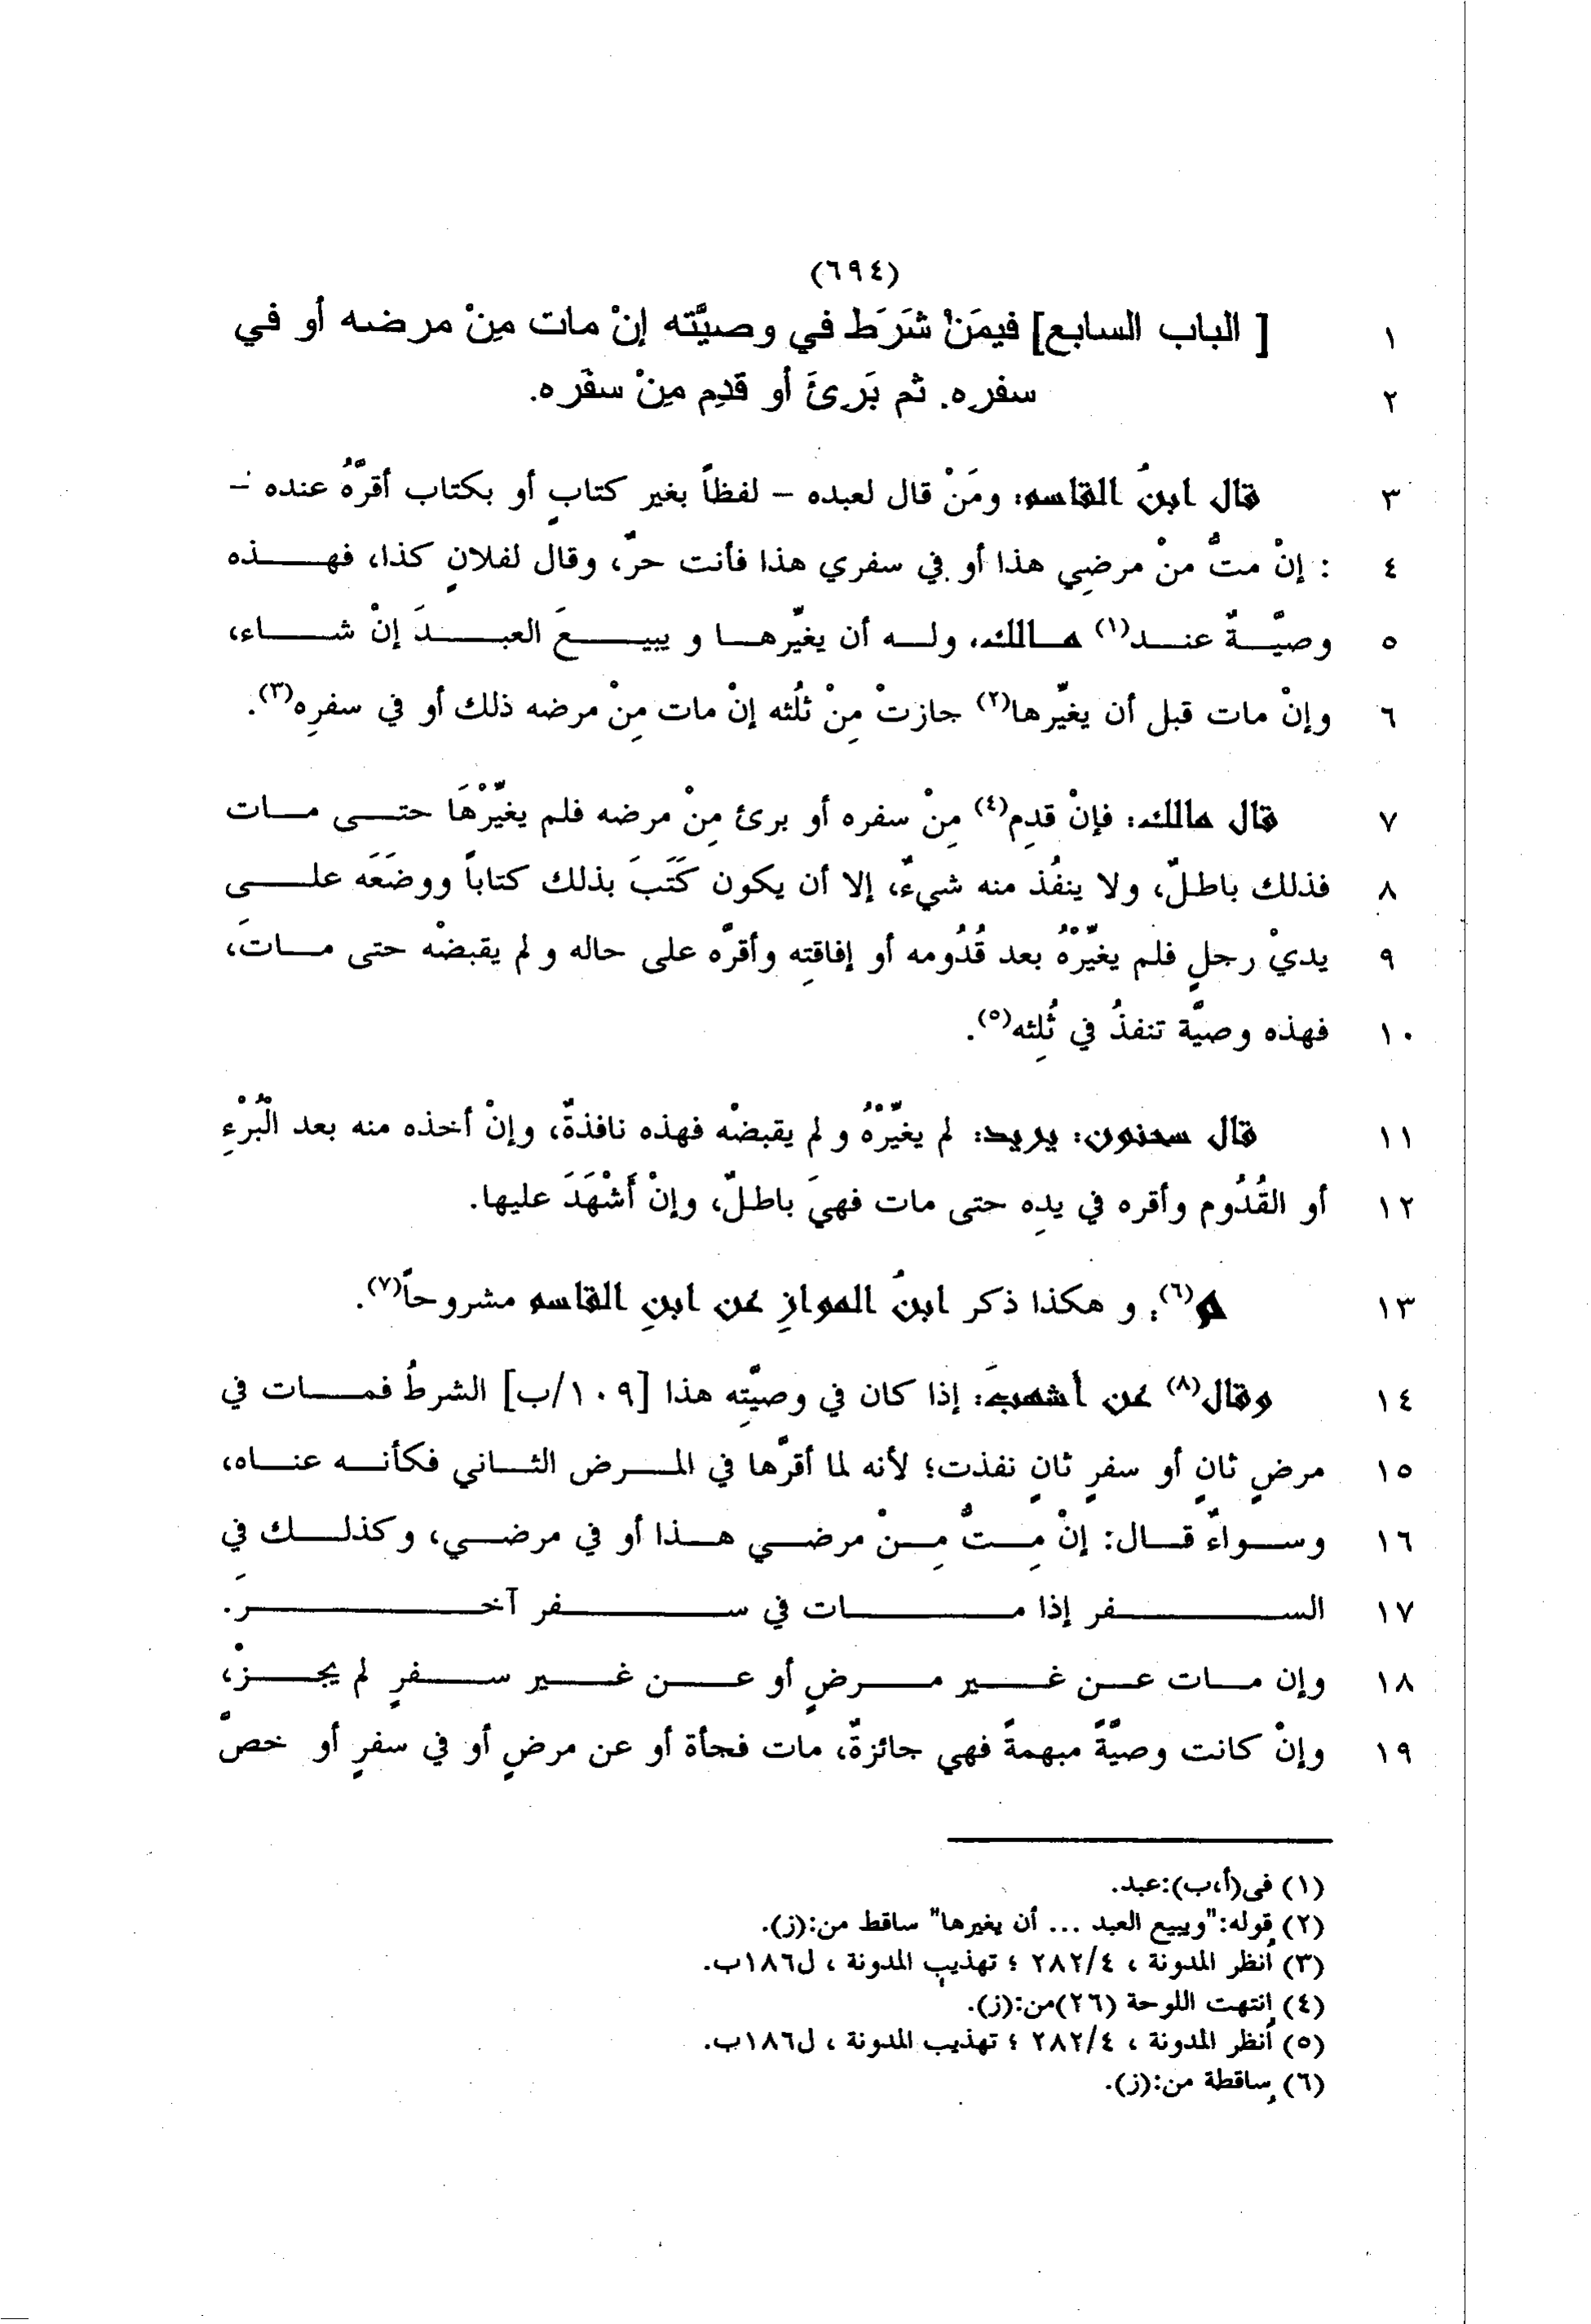 (٦٩٤)
١ [ الباب السابع] فيمَنْ شَرَط في وصيَّته إنْ مات مِنْ مرضه أو في
٢ سفره. ثم بَرِئَ أو قدِم مِنْ سفَره.
٣ قال ابنُ القاسم: ومَنْ قال لعبده – لفظاً بغير كتابٍ أو بكتاب أقرَّهُ عنده –
٤ : إنْ متُّ منْ مرضِي هذا أو في سفري هذا فأنت حرٌّ، وقال لفلانٍ كذا، فهذه
٥ وصيَّةٌ عند(١) مالك، وله أن يغيِّرها و يبيعَ العبدَ إنْ شاء،
٦ وإنْ مات قبل أن يغيِّرها(٢) جازتْ مِنْ ثلُثه إنْ مات مِنْ مرضه ذلك أو في سفرِه(٣).
٧ قال مالك: فإنْ قدِم(٤) مِنْ سفره أو برئ مِنْ مرضه فلم يغيِّرْهَا حتى مات
٨ فذلك باطلٌ، ولا ينفُذ منه شيءٌ، إلا أن يكون كَتَبَ بذلك كتاباً ووضَعَه على
٩ يديْ رجلٍ فلم يغيِّرْهُ بعد قُدُومه أو إفاقتِه وأقرَّه على حاله و لم يقبضْه حتى ماتَ،
١٠ فهذه وصيَّة تنفذُ في ثُلثِه(٥).
١١ قال سحنون: يريد: لم يغيِّرْهُ و لم يقبضْه فهذه نافذةٌ، وإنْ أخذه منه بعد الْبُرْءِ
١٢ أو القُدُوم وأقره في يدِه حتى مات فهيَ باطلٌ، وإنْ أَشْهَدَ عليها.
١٣ م(٦): و هكذا ذكر ابنُ الموازِ عن ابنِ القاسم مشروحاً(٧).
١٤ وقال(٨) عن أشهبَ: إذا كان في وصيَّتِه هذا [١٠٩/ب] الشرطُ فمات في
١٥ مرضٍ ثانٍ أو سفرٍ ثانٍ نفذت؛ لأنه لما أقرَّها في المرض الثاني فكأنه عناه،
١٦ وسواءٌ قال: إنْ مِتُّ مِنْ مرضي هذا أو في مرضي، وكذلك فيِ
١٧ السفر إذا مات في سفر آخر.
١٨ وإن مات عن غير مرضٍ أو عن غير سفرٍ لم يجزْ،
١٩ وإنْ كانت وصيَّةً مبهمةً فهي جائزةٌ، مات فجأة أو عن مرضٍ أو في سفرٍ أو خصَّ
(١) في(أ،ب):عبد.
(٢) قوله:"ويبيع العبد ... أن يغيرها" ساقط من:(ز).
(٣) أنظر المدونة ، ٢٨٢/٤ ؛ تهذيب المدونة ، ل١٨٦ب.
(٤) إنتهت اللوحة (٢٦)من:(ز).
(٥) أنظر المدونة ، ٢٨٢/٤ ؛ تهذيب المدونة ، ل١٨٦ب.
(٦) ساقطة من:(ز).